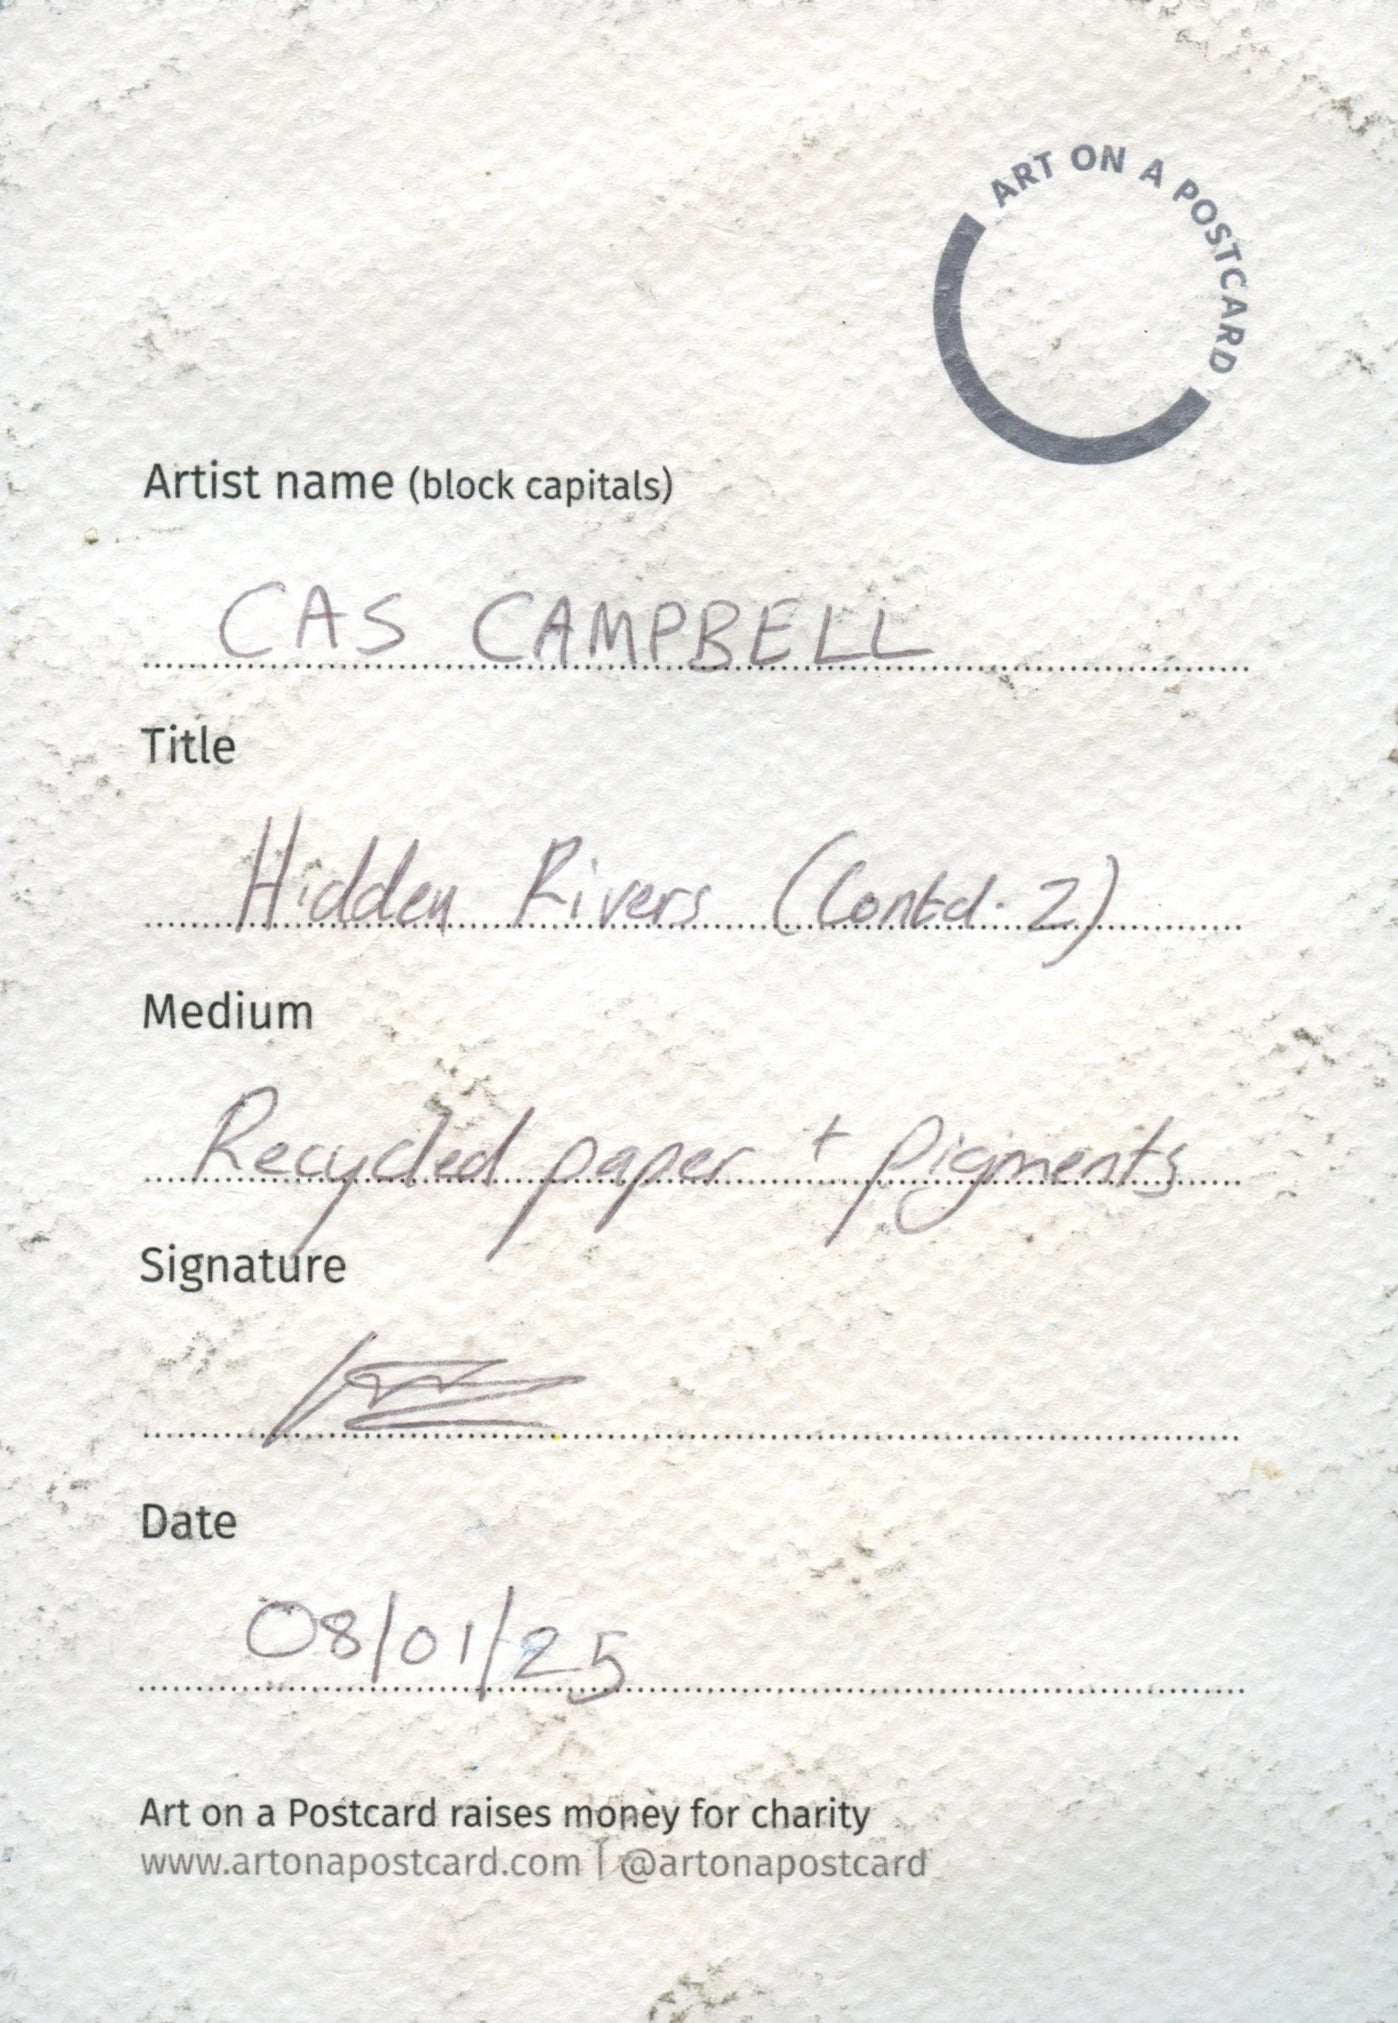 ART ON A POSTCARD
Artist name (block capitals)
CAS CAMPBELL
Title
Hidden Rivers (Contd. 2)
Medium
Recycled paper + pigments
Signature
Date
08/01/25
Art on a Postcard raises money for charity
www.artonapostcard.com | @artonapostcard